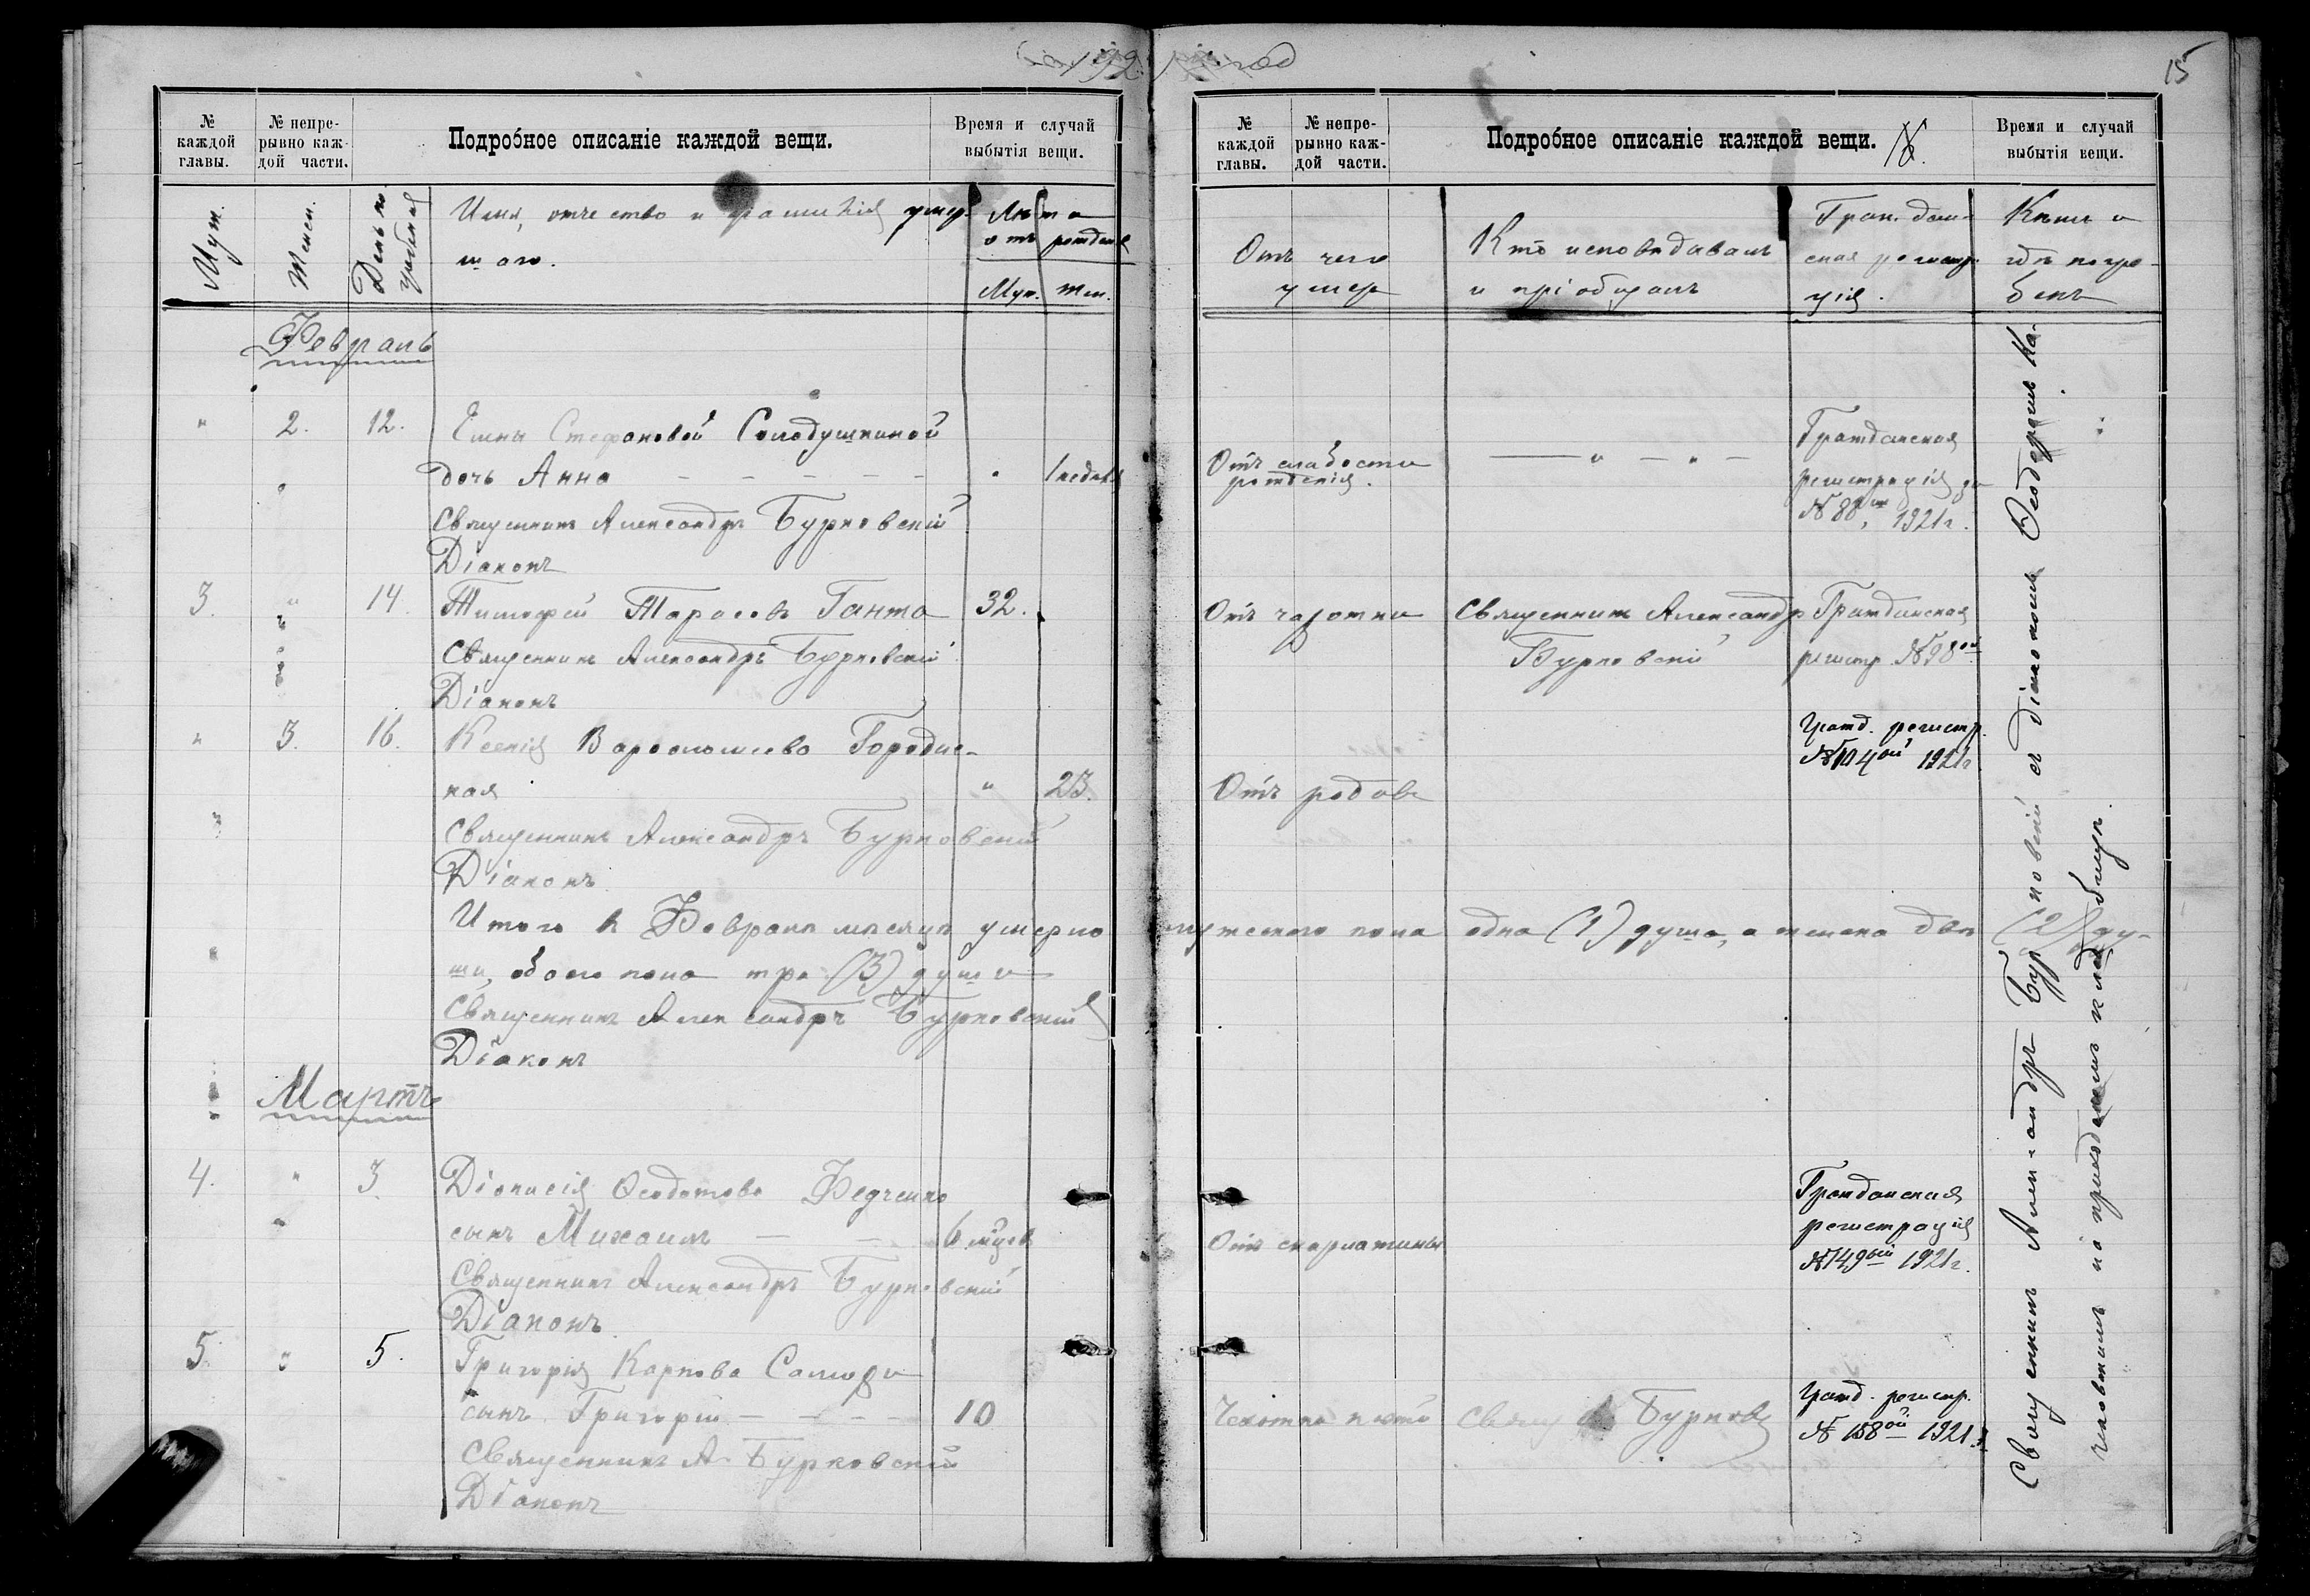 15
№ каждой главы.
№ непрерывно каждой части.
Подробное описаніе каждой вещи.
Время и случай выбытія вещи.
Муж.
Женск.
День погребенія
Имя, отчество и фамилія умер-
шаго.
Лѣта
отъ рожденія
Муж. Жен.
Февраль
" 2. 12. Елены Стефановой Солодушкиной
дочь Анна — — — — — " 1 недѣля
Священникъ Александръ Бурковскій
Діаконъ
3. " 14. Тимофей Тарасовъ Ганжа 32.
Священникъ Александръ Бурковскій
Діаконъ
" 3. 16. Ксенія Городис-
кая " 23.
Священникъ Александръ Бурковскій
Діаконъ
Итого в Февралѣ мѣсяцѣ умерло
ши, обоего пола три (3) души
Священникъ Александръ Бурковскій
Діаконъ
Мартъ
4. " 3. Діонисія Ѳеодотова Федченко
сынъ Михаилъ — — 6 мѣсяц.
Священникъ Александръ Бурковскій
Діаконъ
5. " 5. Григорія Карпова
сынъ Григорій — — — 10
Священникъ А. Бурковскій
Діаконъ
№ каждой главы.
№ непрерывно каждой части.
Подробное описаніе каждой вещи.
Время и случай выбытія вещи.
Отъ чего
умер
Кто исповѣдавалъ
и пріобщалъ
Граждан-
ская регистр-
ція.
Кѣмъ и
гдѣ погре-
бенъ
Отъ слабости
рожденія.
— " — " —
Гражданская
регистрація за
№ 88 1921 г.
Отъ чахотки
Священникъ Александръ
Бурковскій
Гражданская
регистр. № 98ой
Гражд. регистр.
№ 104ой 1921 г.
Отъ родовъ
мужескаго пола одна (1) душа, а женска двѣ (2) ду-
Отъ скарлатины
Гражданская
регистрація
№ 149ой 1921 г.
Свящ А. Бурковс
Гражд. регистр.
№ 158ой 1921 г.
Священникъ Александръ Бурковскій съ діакономъ Ѳеодоромъ Ка-
на приходскомъ кладбищѣ.